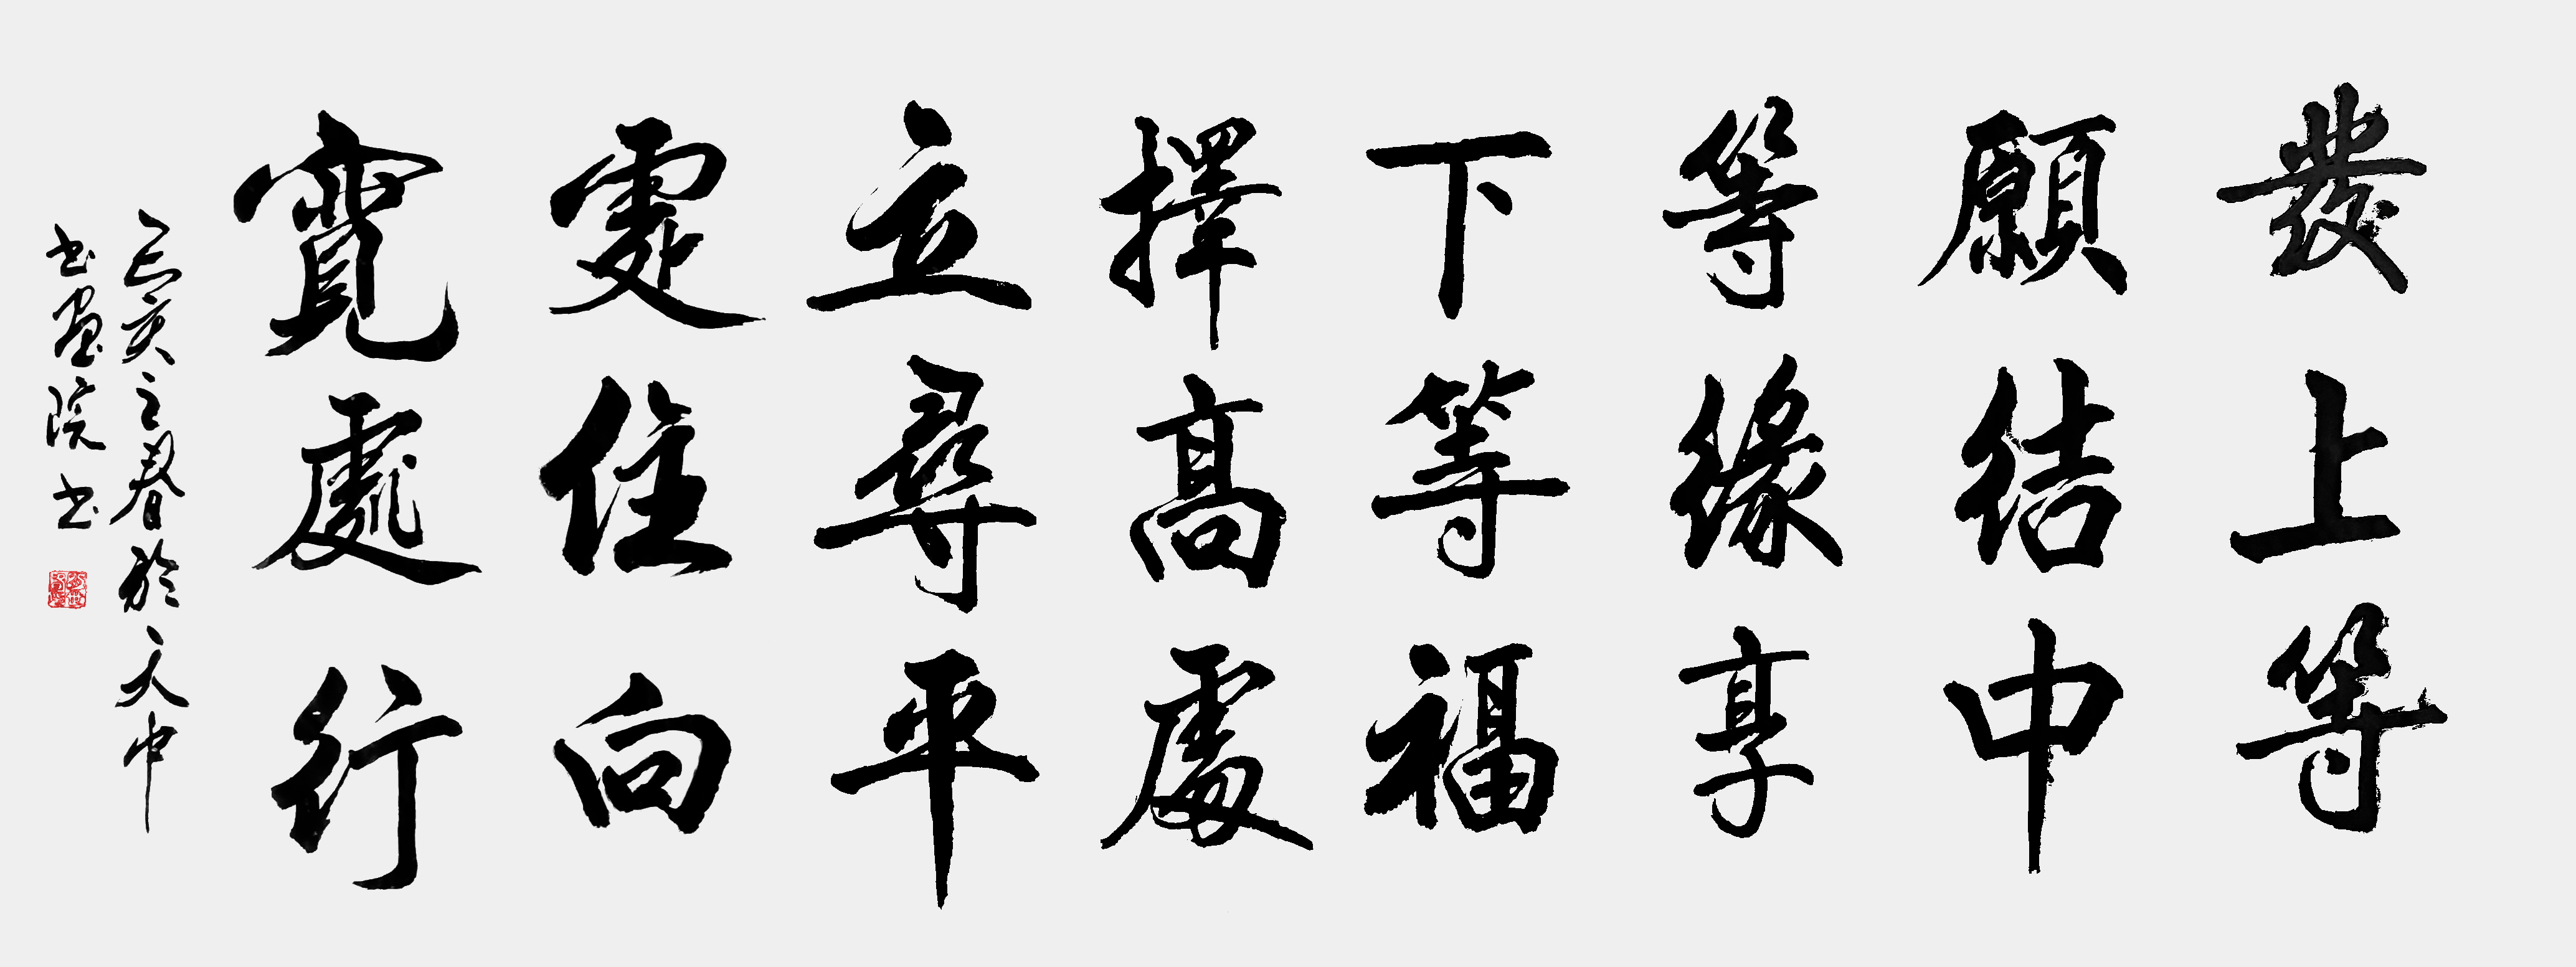 發上等
願結中
等緣享
下等福
擇高處
立尋平
處住向
寬處行
己亥之春於天中
书画院书